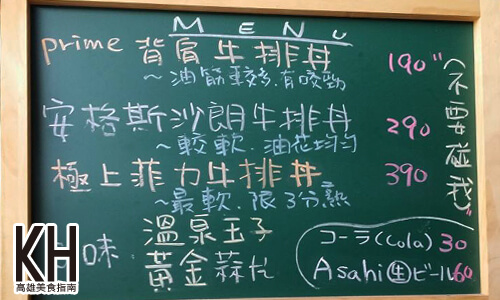 MENU
prime 背肩牛排丼 190
~油筋較多.有咬勁
安格斯沙朗牛排丼 290
~較軟.油花均勻
極上菲力牛排丼 390
~最軟.限3分熟
味 溫泉玉子
黃金蒜片
コーラ(Cola) 30
Asahi生ビール60
"(不要碰我)"
KH
高雄美食指南